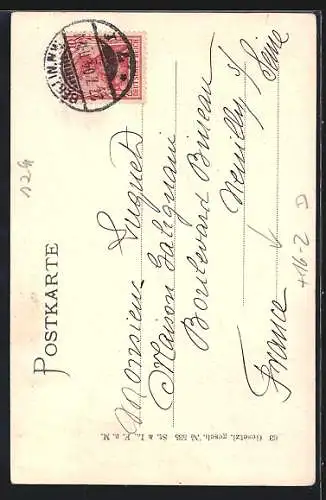 POSTKARTE
BERLIN, N.W.
Monsieur Suquet
Maison Galignani
Boulevard Bineau
Neuilly s/ Seine
France
63 Gesetzl. gesch. № 535 St. & Co., F. a. M.
124
+16-2 D